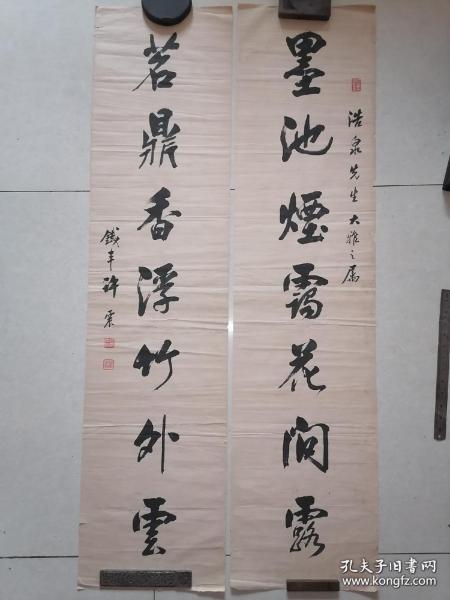 墨池煙靄花間露
浩泉先生大雅之属
茗鼎香浮竹外雲
鐵丰許震
孔夫子旧书网
www.kongfz.com